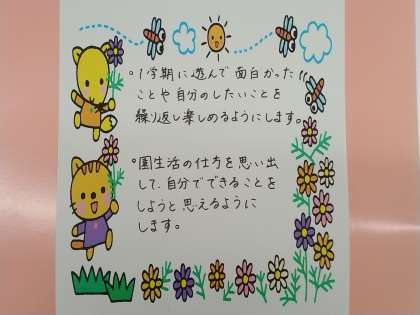 。1学期に遊んで面白かった
ことや自分のしたいことを
繰り返し楽しめるようにします。
。園生活の仕方を思い出
して、自分でできることを
しようと思えるように
します。